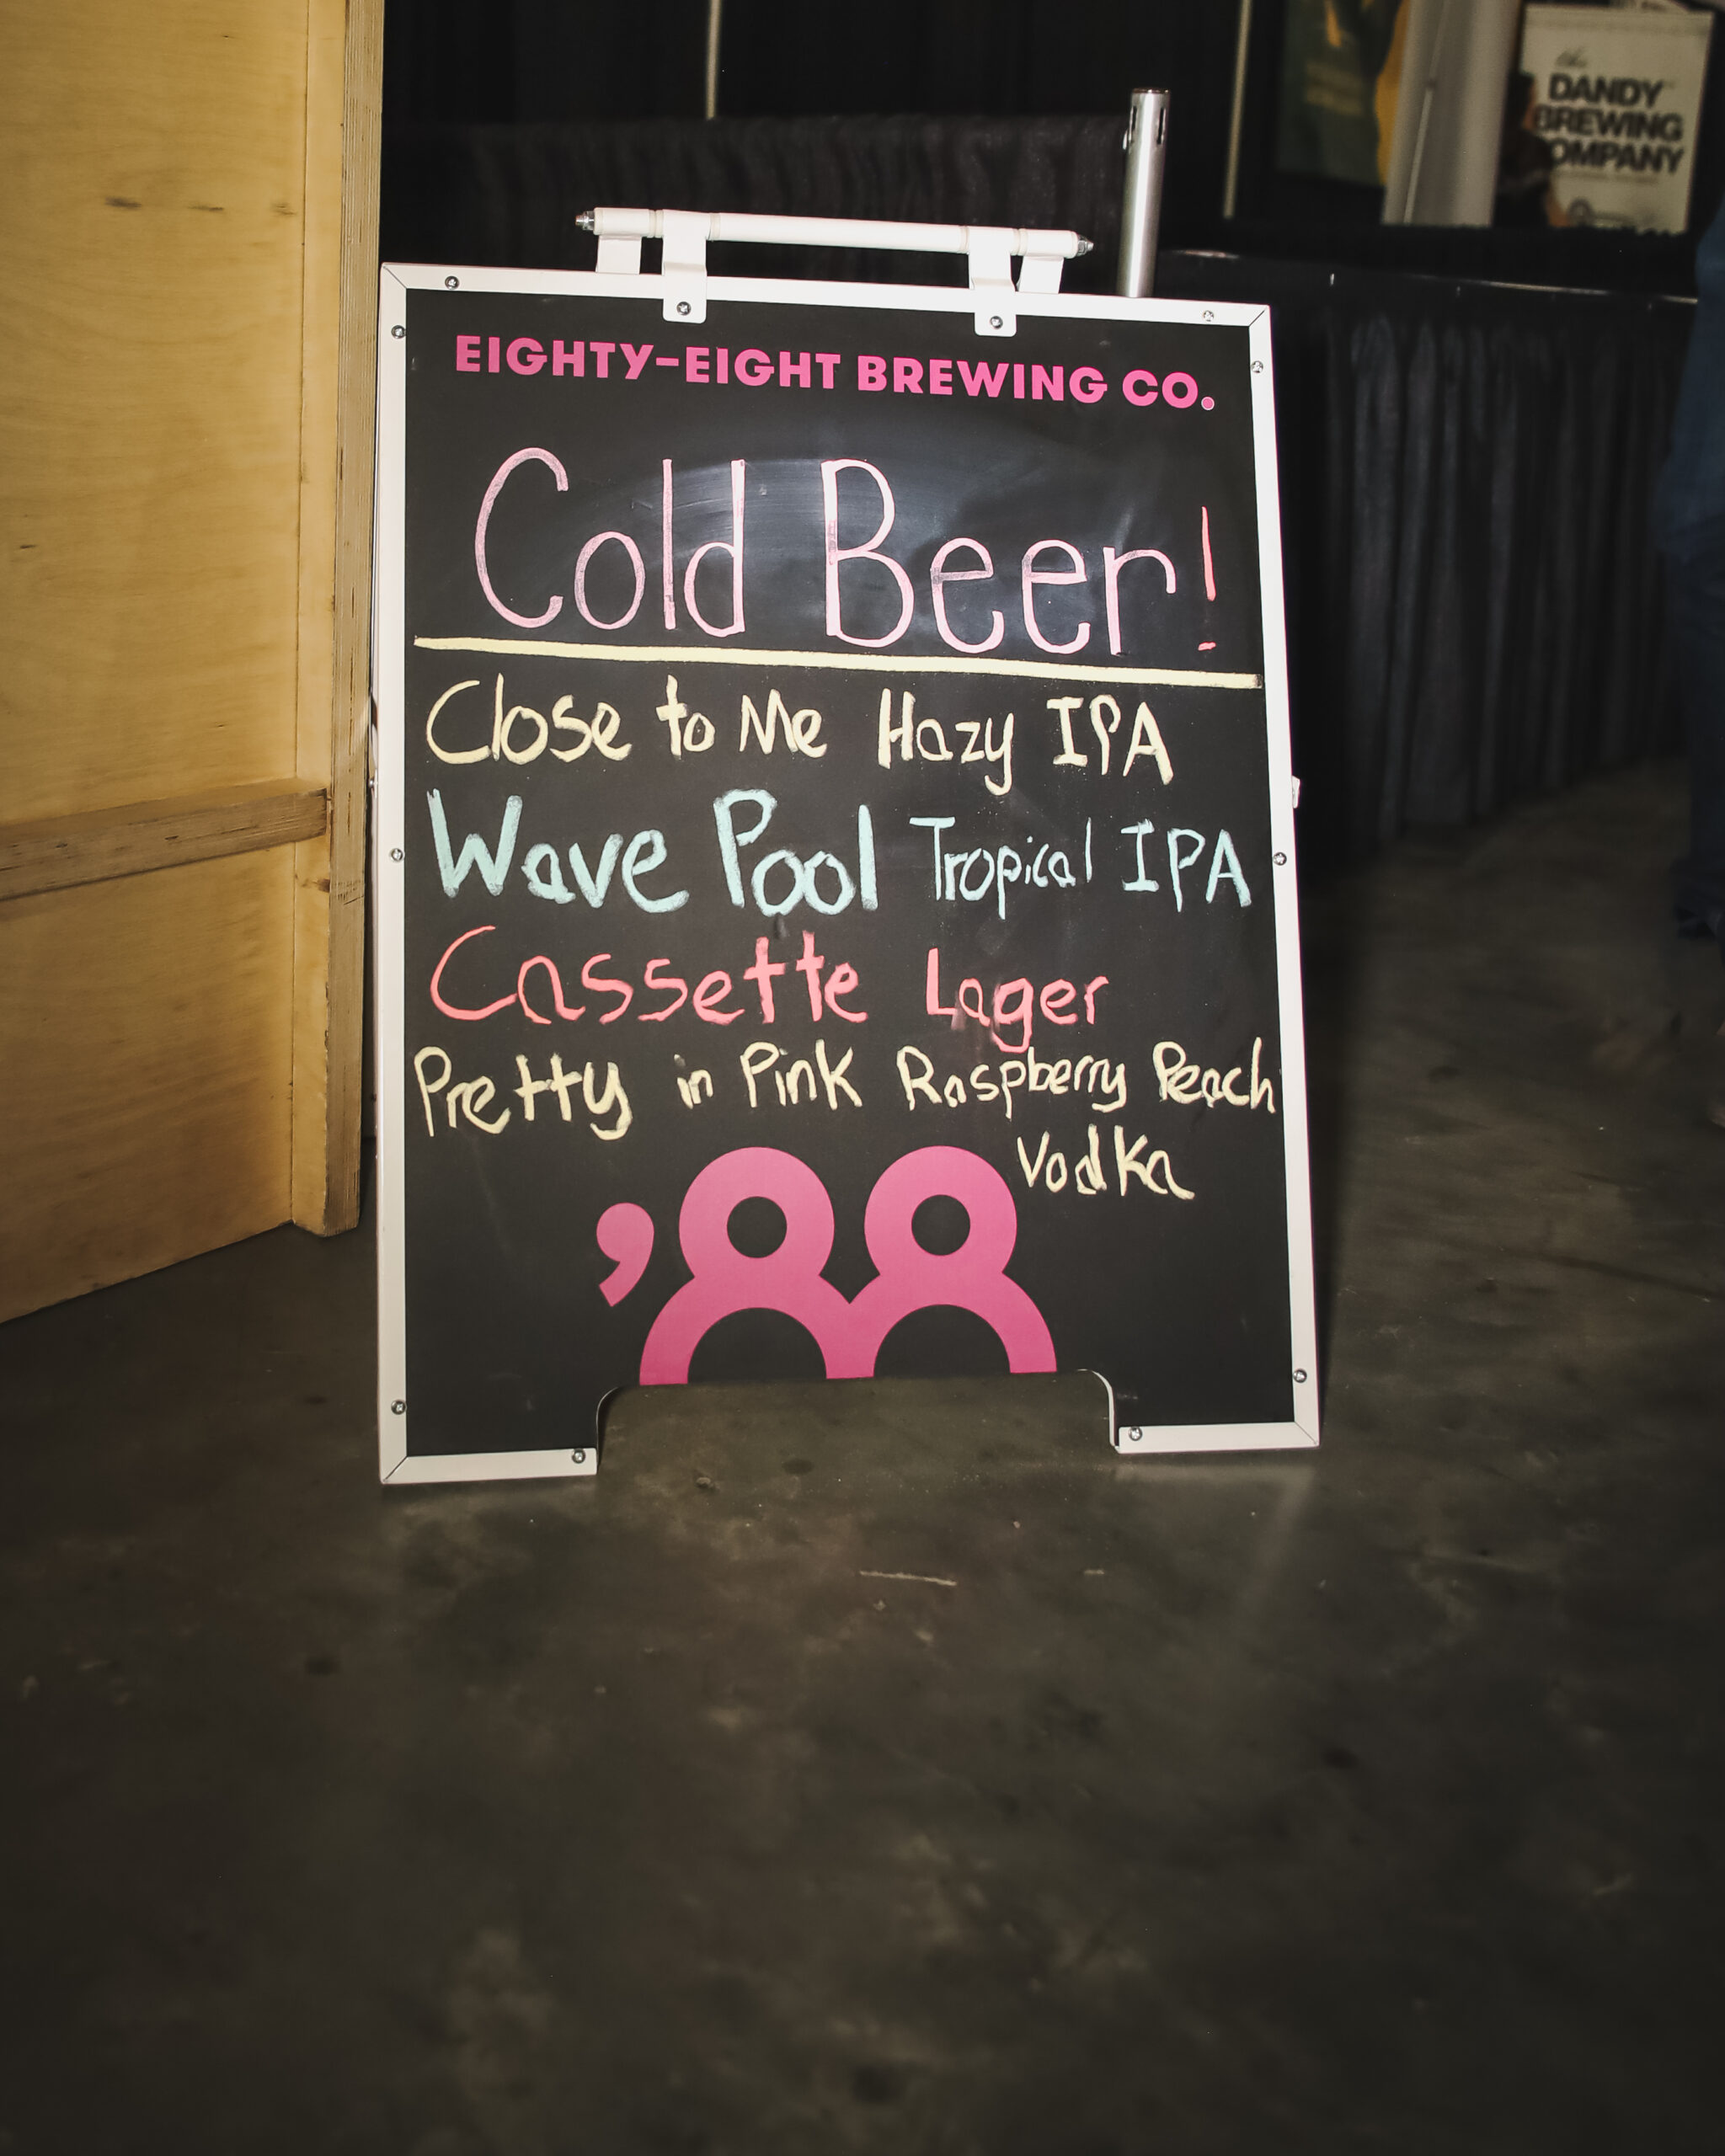 the
DANDY
BREWING
COMPANY
EIGHTY-EIGHT BREWING CO.
Cold Beer!
Close to Me Hazy IPA
Wave Pool Tropical IPA
Cassette Lager
Pretty in Pink Raspberry Peach
Vodka
'88